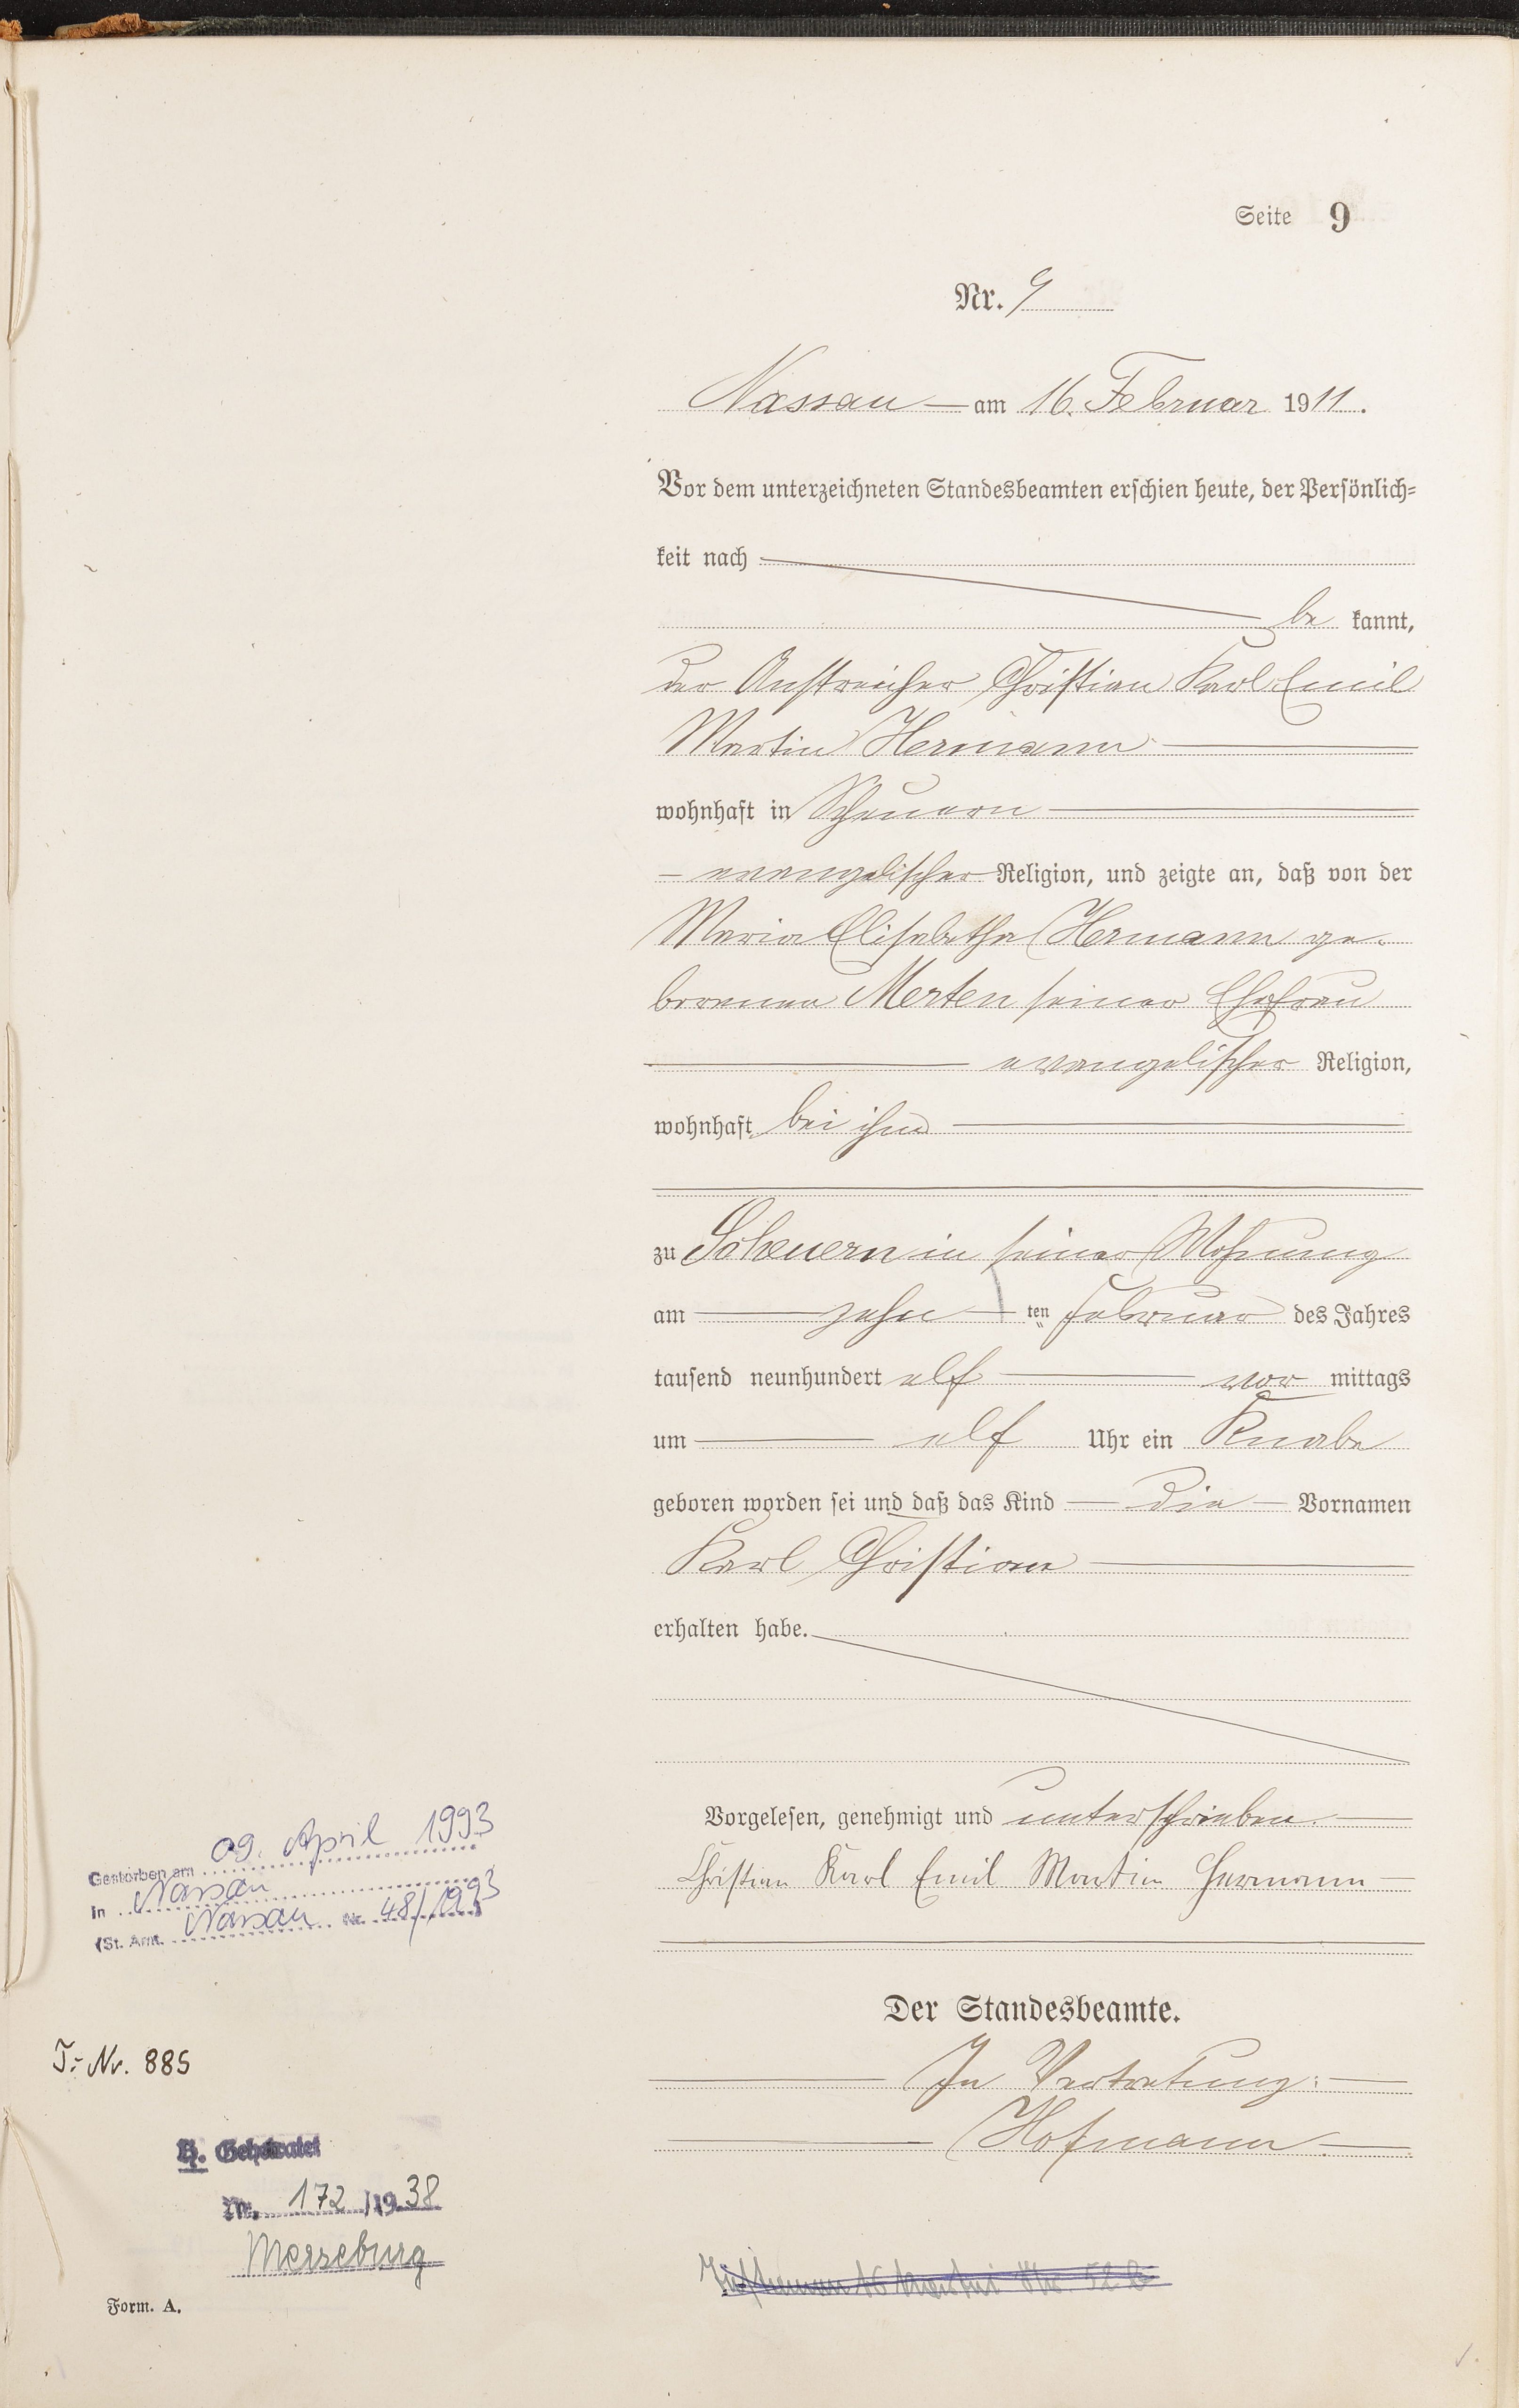 Seite 9
Nr. 9
Nassau am 16. Februar 1911.
Vor dem unterzeichneten Standesbeamten erschien heute, der Persönlich-
keit nach
be kannt,
der Anstreicher Christian Karl Emil
Martin Hermann
wohnhaft in Scheuern
evangelischer Religion, und zeigte an, daß von der
Maria Elisabetha Hermann ge-
borenen Merten seiner Ehefrau
evangelischer Religion,
wohnhaft bei ihm
zu Scheuern in seiner Wohnung
am zehn ten Februar des Jahres
tausend neunhundert elf vor mittags
um elf Uhr ein Knabe
geboren worden sei und daß das Kind die Vornamen
Karl Christian
erhalten habe.
Vorgelesen, genehmigt und unterschrieben.
Christian Karl Emil Martin Hermann
Der Standesbeamte.
In Vertretung:
Hofmann
Gestorben am 09. April 1993
in Nassau
(St. Amt. Nassau Nr. 48/1993
T: Nr. 885
H. Geheiratet
Nr. 172/1938
Merseburg
Form. A.